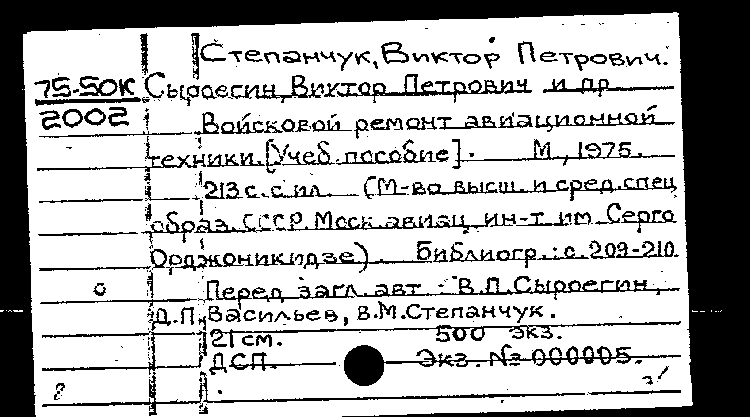 Степанчук, Виктор Петрович.
75-50К Сыроегин, Виктор Петрович и др
2002
Войсковой ремонт авиационной
техники. [Учеб. пособие]. М., 1975.
213 с. с ил. (М-во высш. и сред. спец
образ. СССР. Моск. авиац. ин-т им. Серго
Орджоникидзе). Библиогр.: с. 209-210
Перед загл. авт.: В.П. Сыроегин,
Д.П. Васильев, В.М. Степанчук.
21 см. 500 экз.
ДСП. Экз. № 000005.